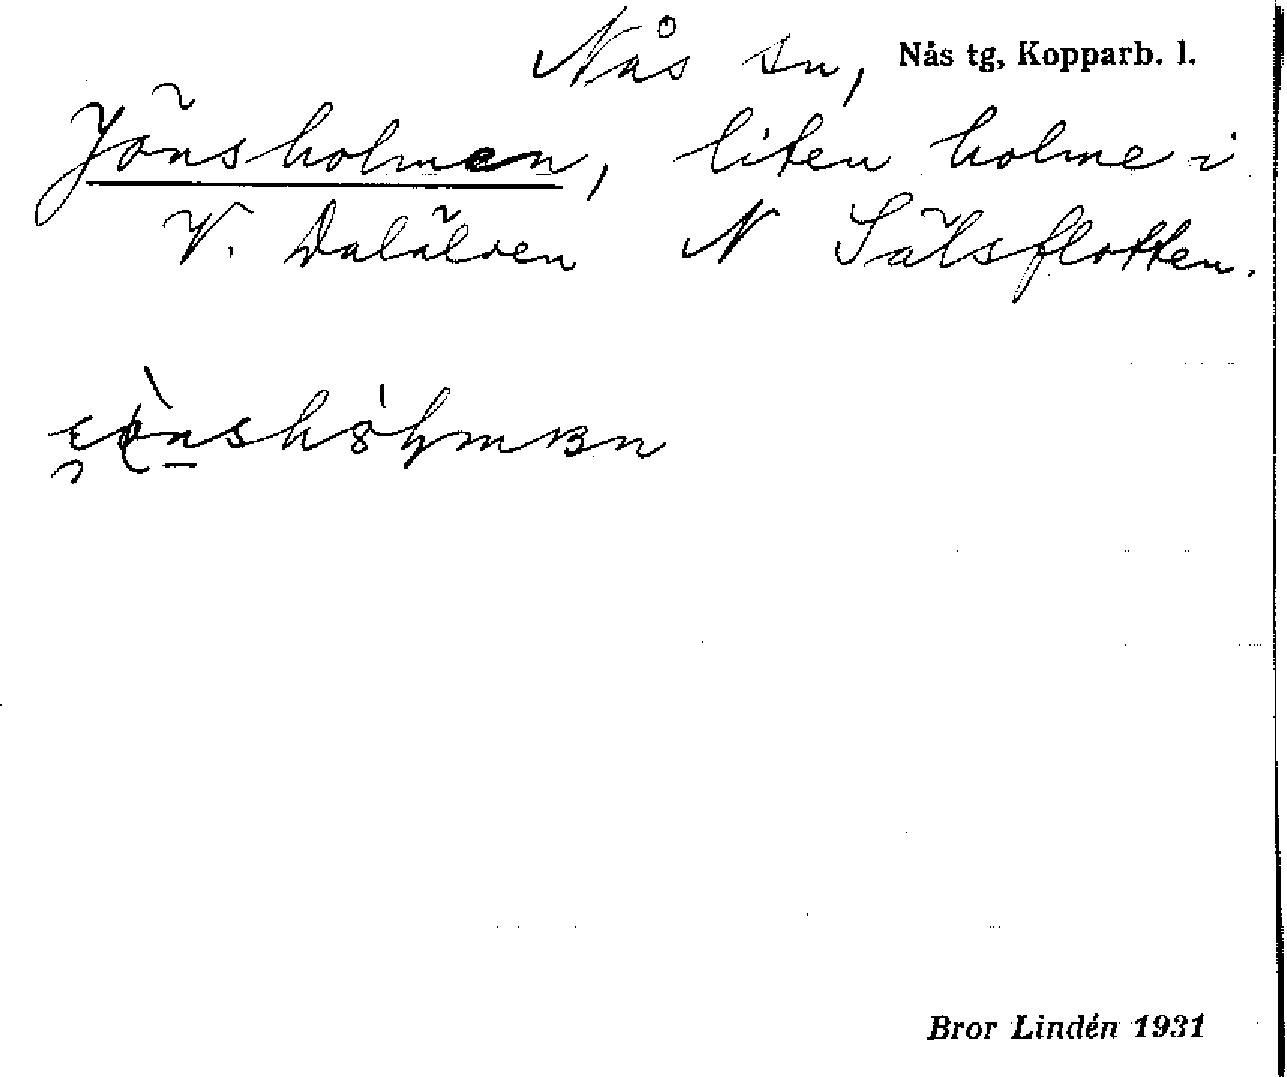 Nås sn, Nås tg, Kopparb. l.
Jönsholmen, liten holme i
V. Dalälven N Sälsflotten.
Bror Lindén 1931